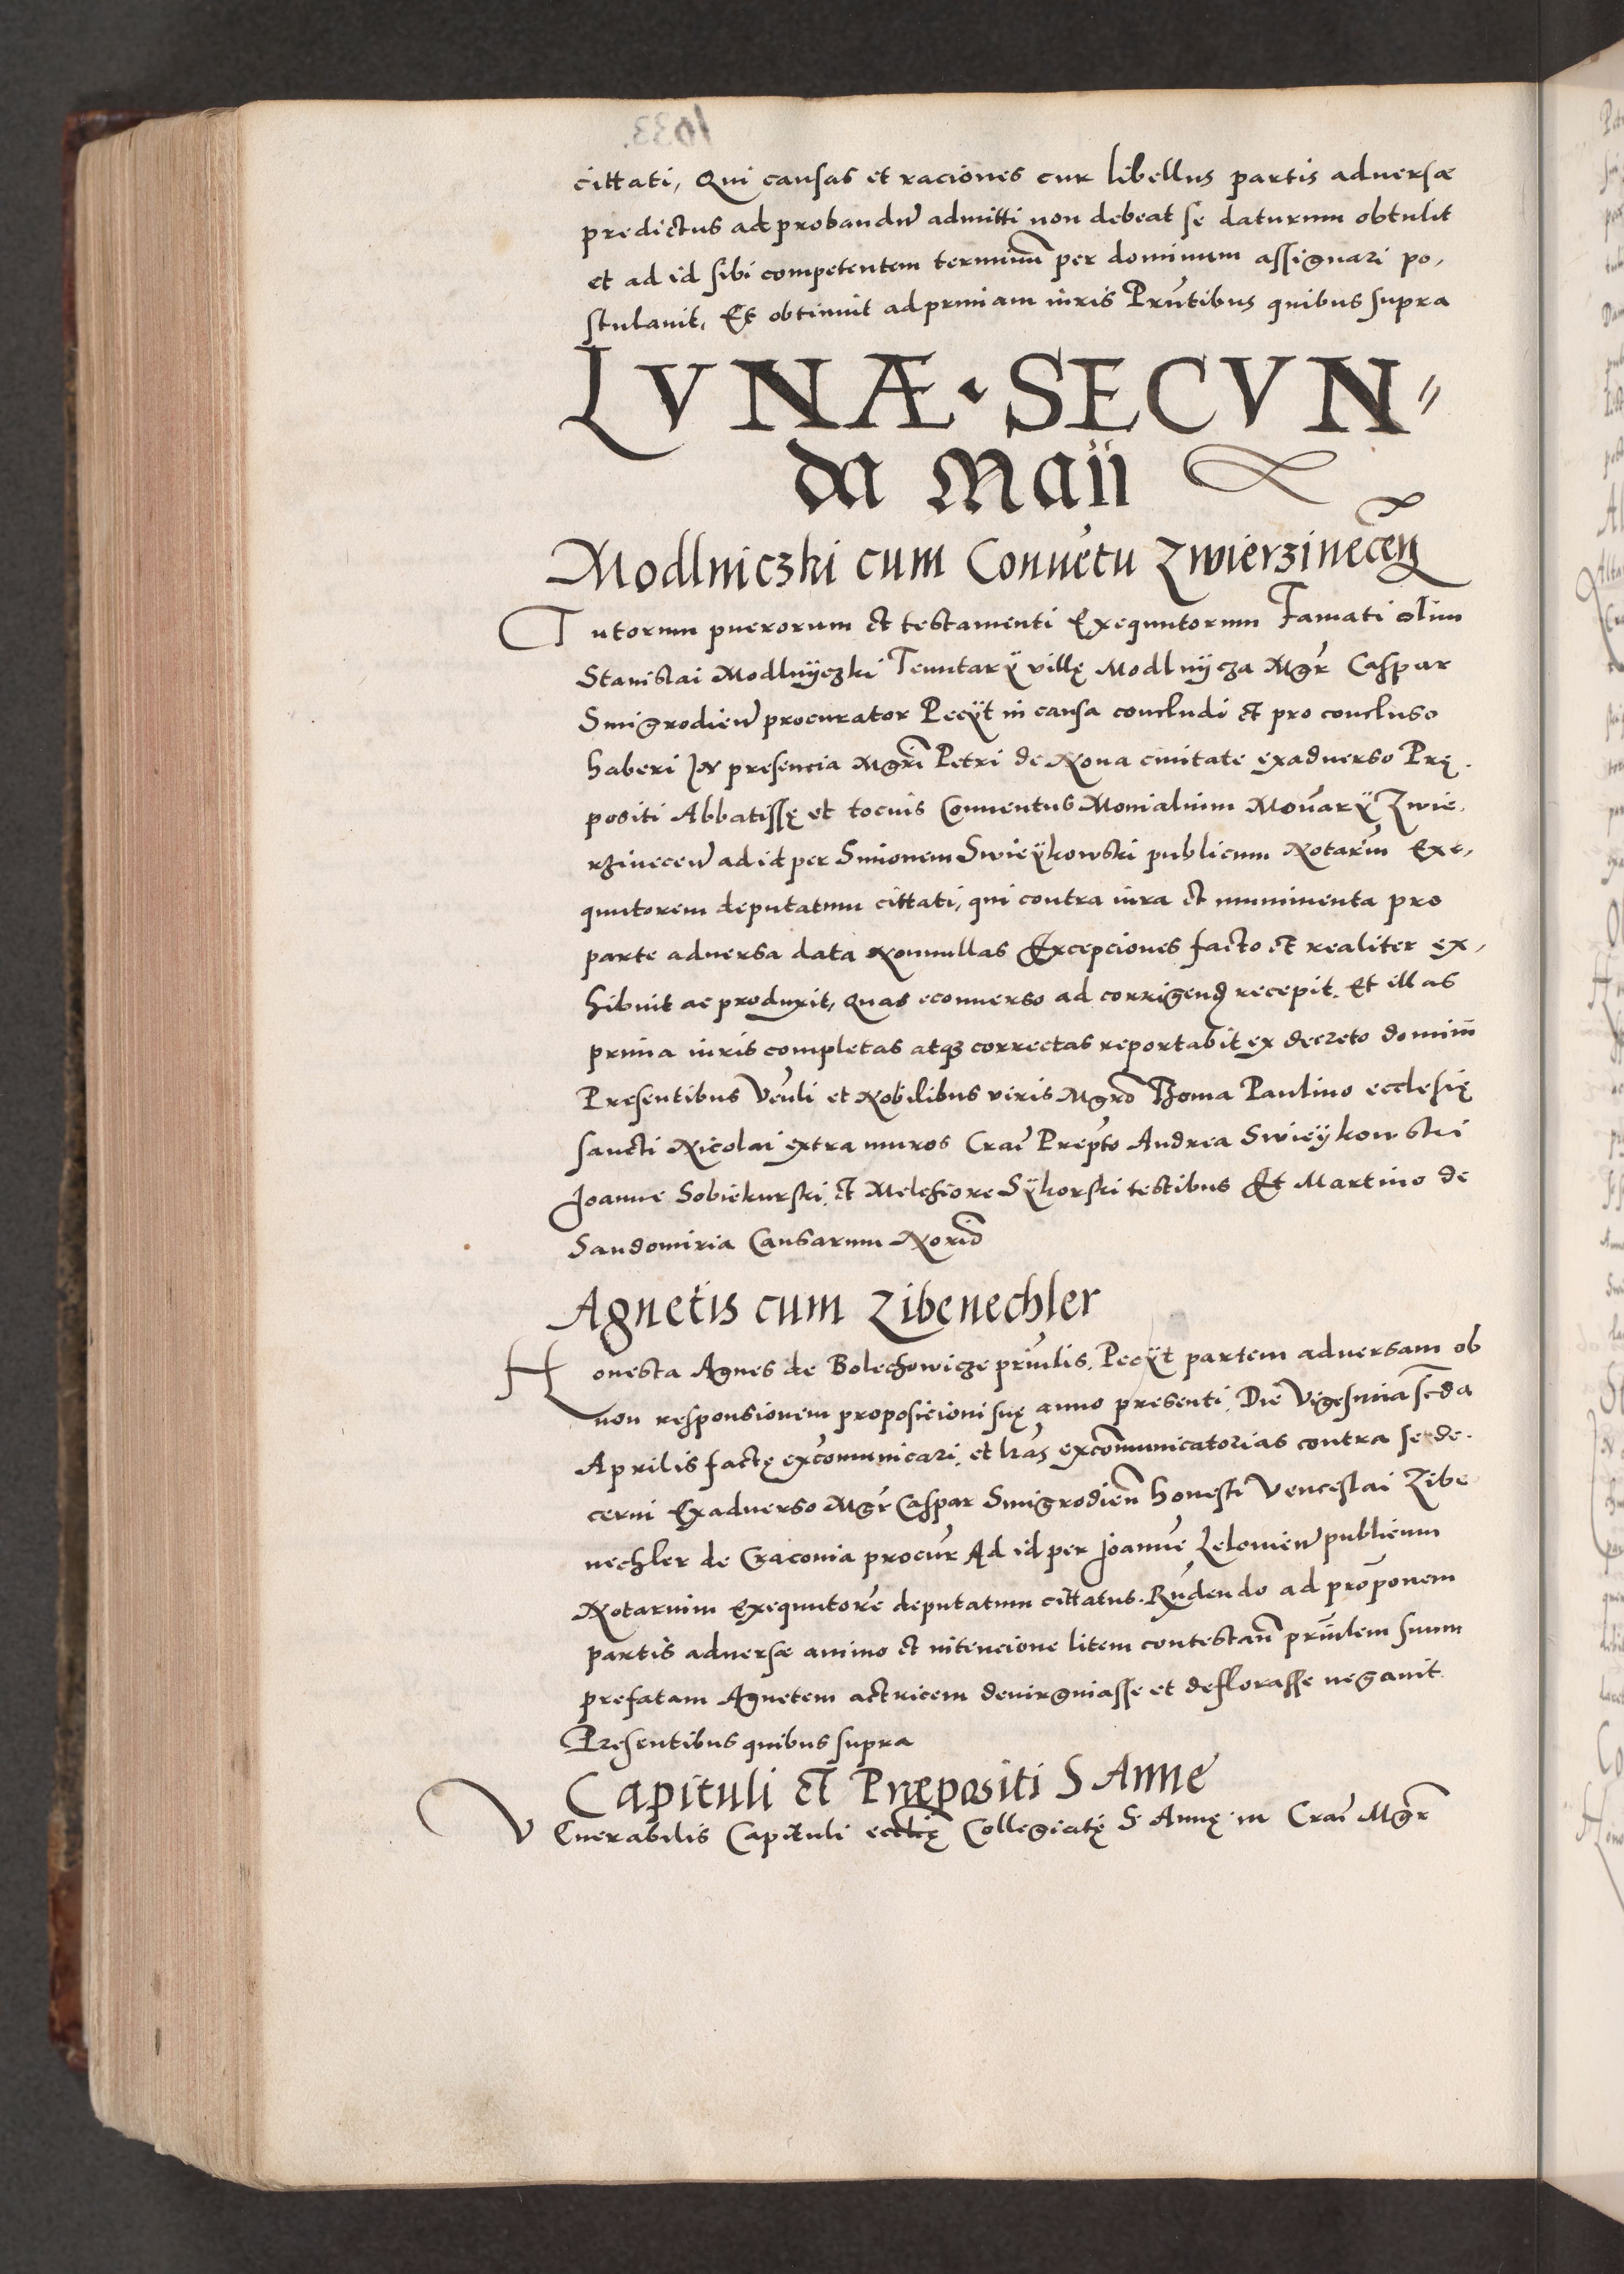 cittati, Qui causas et raciones cur libellus partis adversæ
predictus ad probandũ admitti non debeat se daturum obtulit
et ad id sibi competentem terminũ per dominum assignari po,
stulauit, Et obtinuit ad primam iuris Prñtibus quibus supra
LVNÆ · SECVN〃
da Maii
Modlniczki cum Conuẽtu Zwierzinecẽn
Tutorum puerorum et testamenti Exequutorum Famati olim
Stanislai Modlnÿczki Tenutarÿ villę Modlnÿcza Mgr̃ Caspar
Smigrodien̄ procurator Pecÿt in causa concludi et pro concluso
haberi In presencia Mgrĩ Petri de Noua ciuitate exaduerso Prę.
positi Abbatissę et tocius Conuentus Monialium Monãrÿ Zwie.
rzinecen̄ ad id per Simonem Swieÿkowski publicum Notariũ Exe,
quutorem deputatum cittati, qui contra iura et munimenta pro
parte aduersa data Nonnullas Excepciones facto et realiter ex,
hibuit ac produxit, Quas econuerso ad corrigend recepit. Et illas
prima iuris completas atq3 correctas reportabit ex decreto dominĩ
Presentibus Venl̃i et Nobilibus viris Mgrõ Thoma Paulino ecclesię
sancti Nicolai extra muros Crac̃ Prepto Andrea Swieÿkowski
Joanne Sobiekurski, et Melchiore Sÿkorski testibus Et Martino de
Sandomiria Causarum Norĩo
Agnetis cum Zibenechler
Honesta Agnes de Bolechowicze prin̄lis, Pecÿt partem aduersam ob
non responsionem proposicioni suę anno presenti, Die Vigesima scd̃a
Aprilis factę excõmunicari, et lrãs excõmunicatorias contra se de.
cerni Exaduerso Mgr̃ Caspar Smigrodien̄ honesti Venceslai Zibe
nechler de Cracouia procur̃ Ad id per Joannẽ Lelouien̄ publicum
Notarium Exequutorẽ deputatum cittatus. Rñdendo ad propõnem
partis aduersæ animo et intencione litem contestan̄ prin̄lem suum
prefatam Agnetem actricem deuirginasse et deflorasse negauit
Presentibus quibus supra
Capituli et Præpositi S Anne
VEnerabilis Capituli eccl̃ię Collegiatę S. Annę in Crac̃ Mgr̃